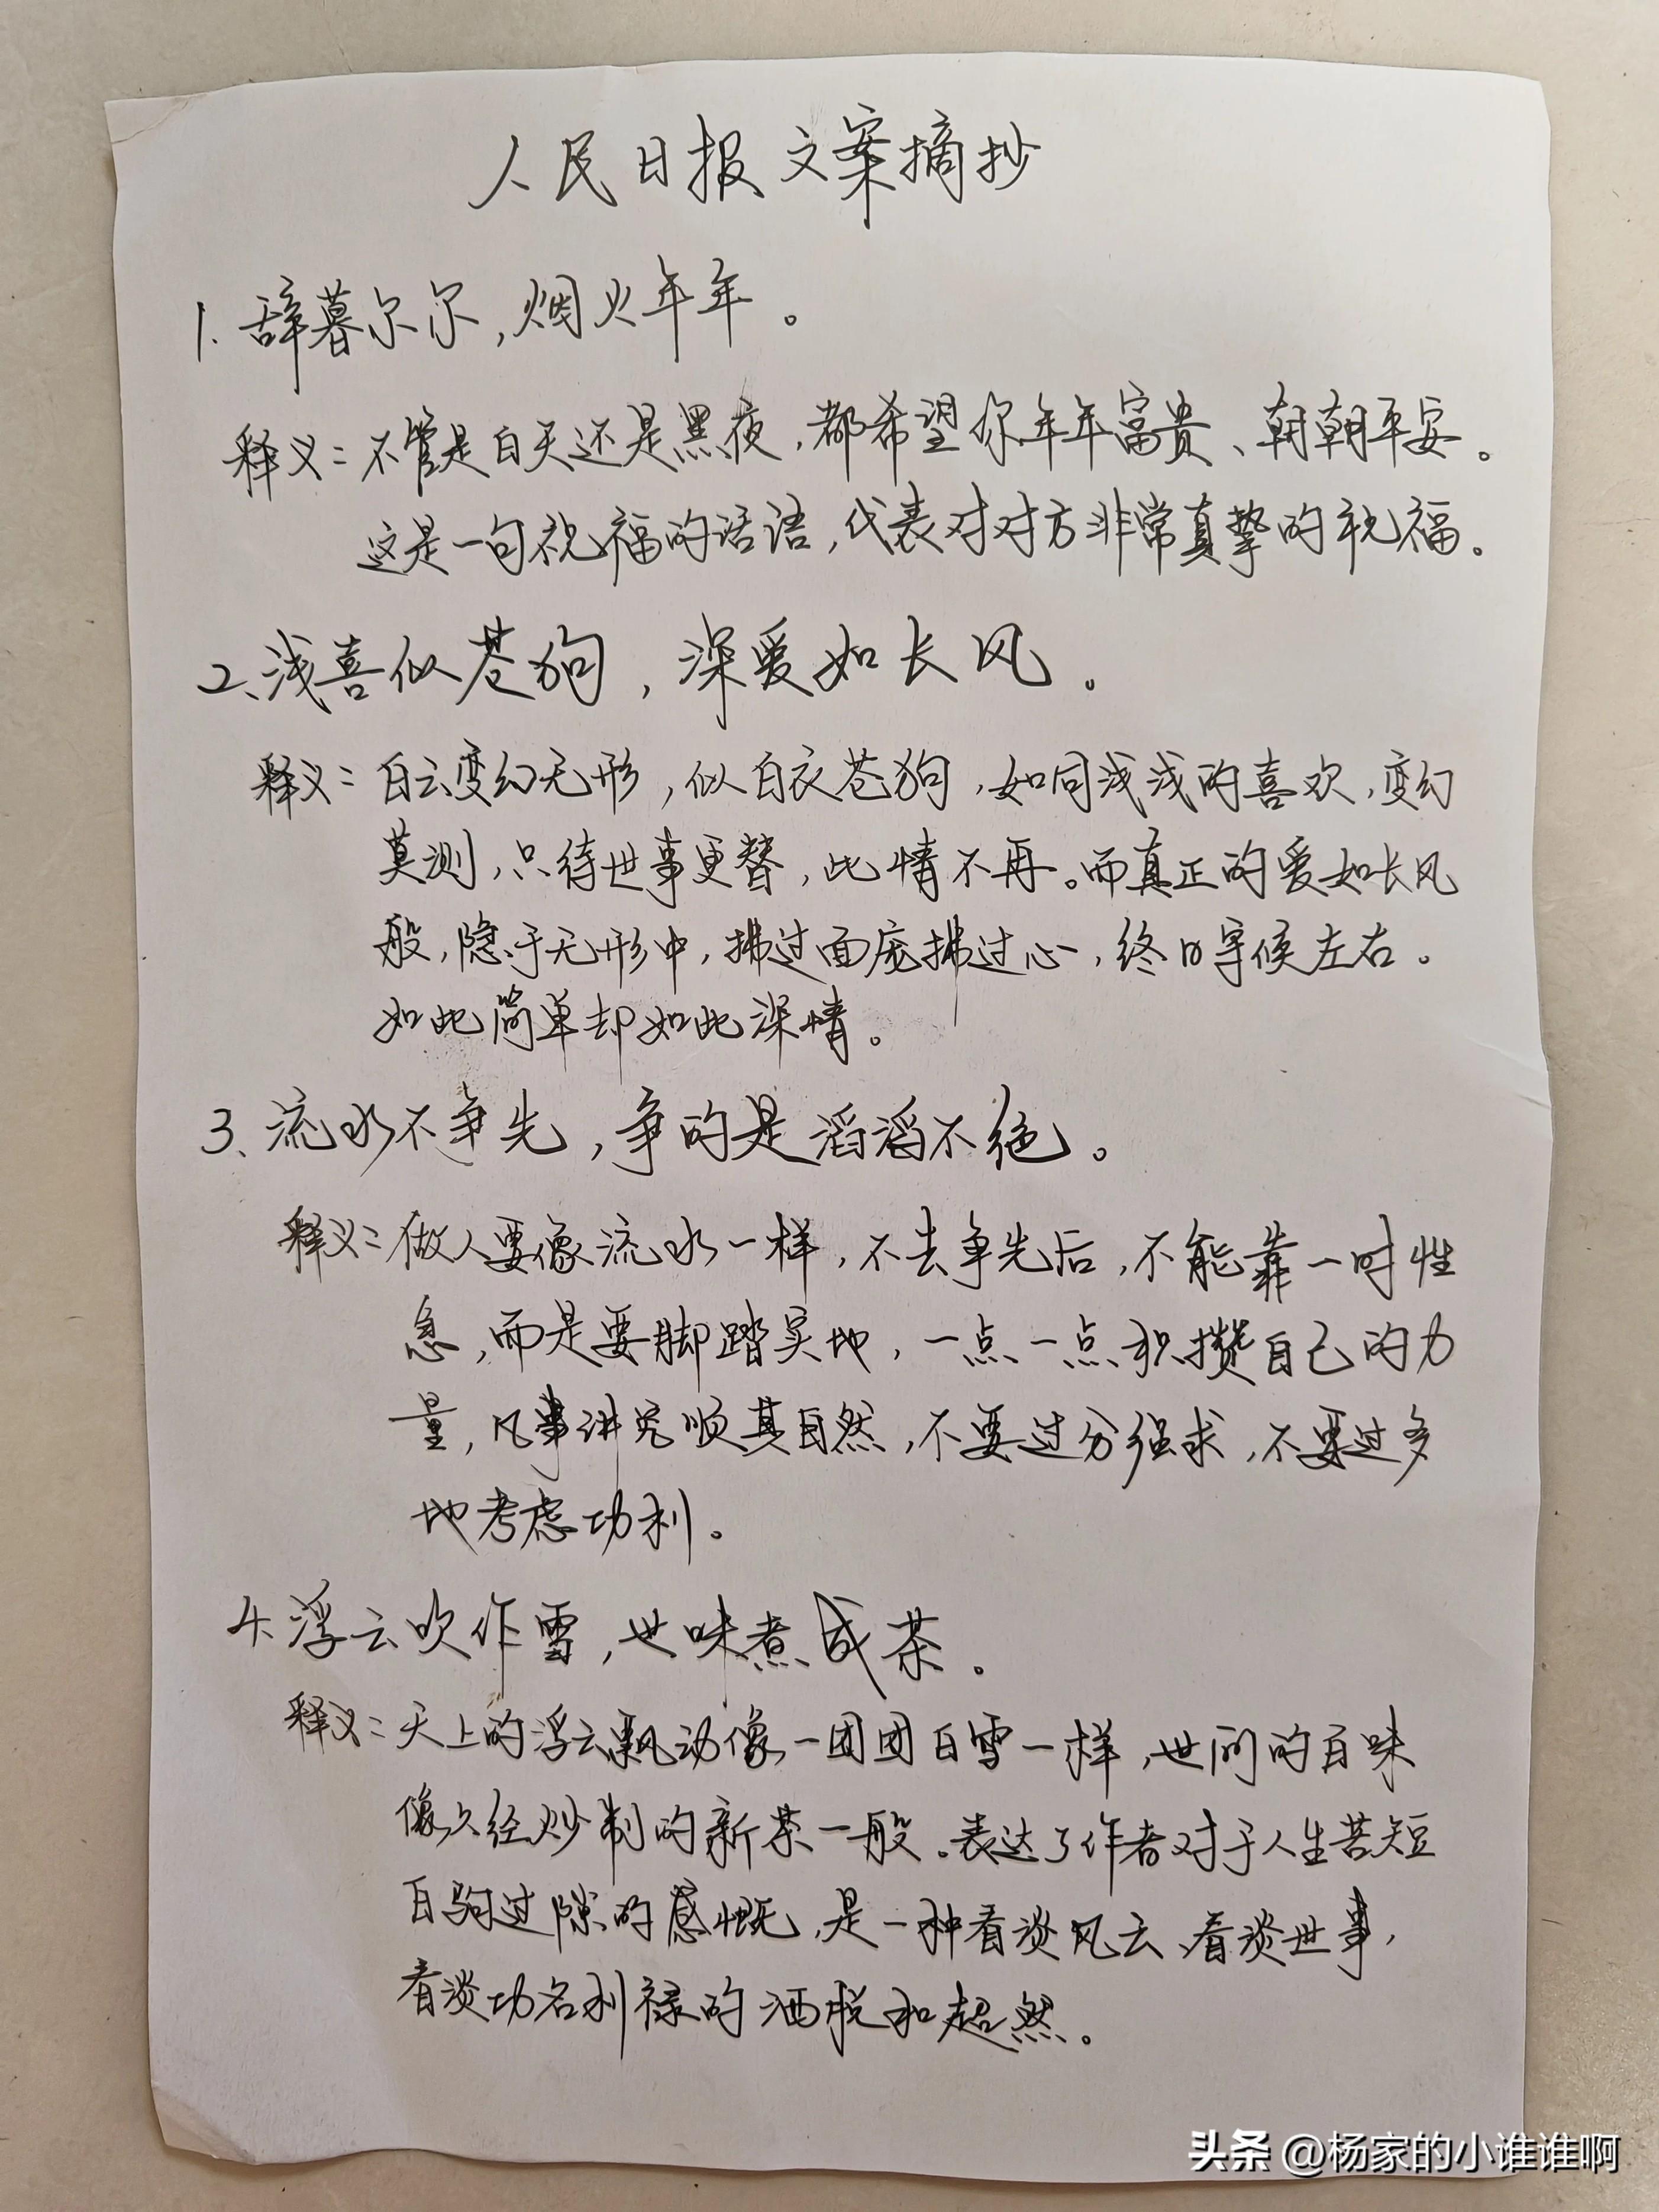 人民日报文案摘抄
1.辞暮尔尔,烟火年年。
释义:不管是白天还是黑夜,都希望你年年富贵、朝朝平安。
这是一句祝福的话语,代表对对方非常真挚的祝福。
2、浅喜似苍狗,深爱如长风。
释义:白云变幻无形,似白衣苍狗,如同浅浅的喜欢,变幻
莫测,只待世事更替,此情不再。而真正的爱如长风
般,隐于无形中,拂过面庞拂过心,终日守候左右。
如此简单却如此深情。
3、流水不争先,争的是滔滔不绝。
释义:做人要像流水一样,不去争先后,不能靠一时性
急,而是要脚踏实地,一点一点积攒自己的力
量,凡事讲究顺其自然,不要过分强求,不要过多
地考虑功利。
4.浮云吹作雪,世味煮成茶。
释义:天上的浮云飘动像一团团白雪一样,世间的百味
像久经炒制的新茶一般。表达了作者对于人生苦短
白驹过隙的感慨,是一种看淡风云、看淡世事,
看淡功名利禄的洒脱和超然。
头条 @杨家的小谁谁啊